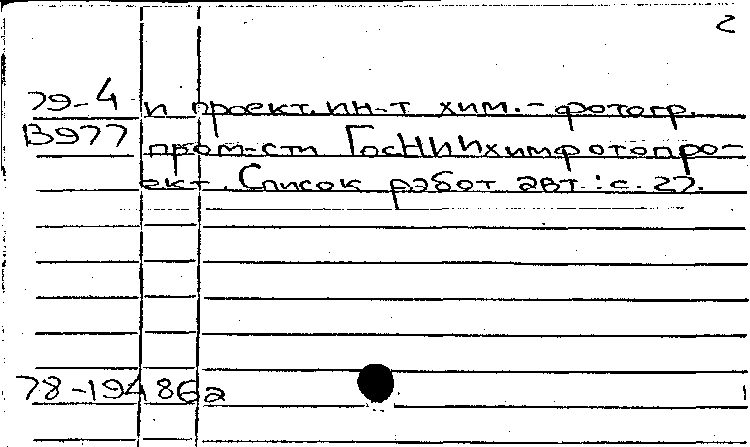 2
79-4 и проект. ин-т хим.-фотогр.
В977 пром-сти ГосНИИхимфотопро-
ект. Список работ авт.: с. 27.
78-19486а